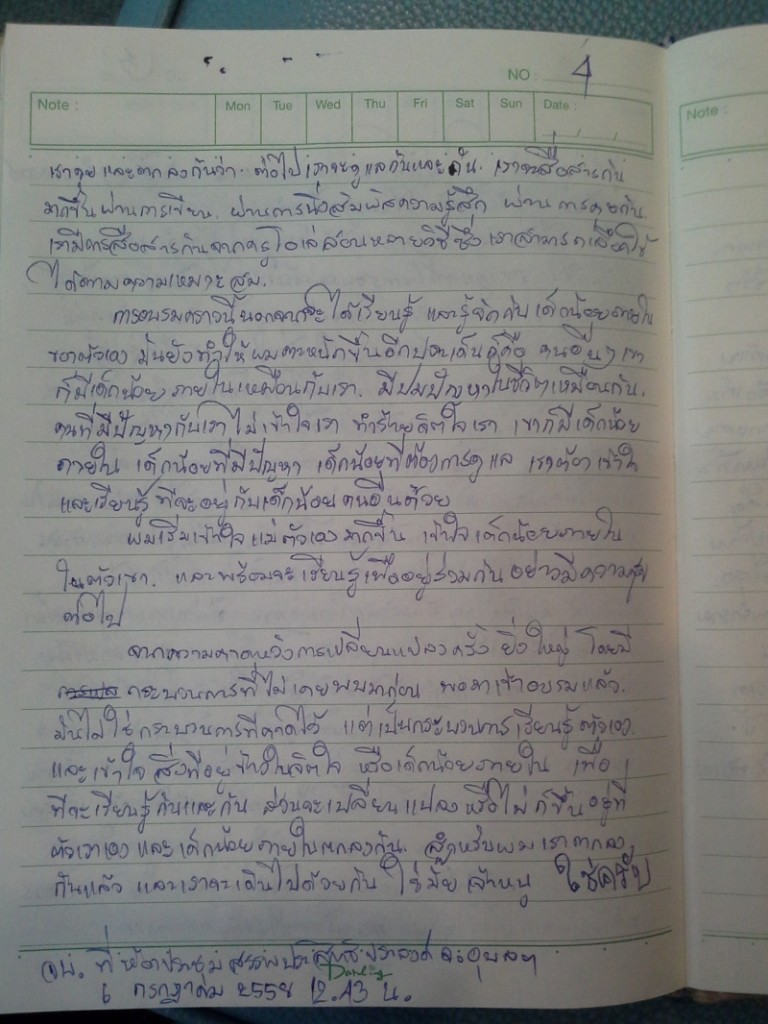 NO : 4
Note : Mon Tue Wed Thu Fri Sat Sun Date :
Note :
เราคุย และตกลงกันว่า ต่อไปเราจะดูแลกันและกัน เราจะสื่อสารกัน
มากขึ้นผ่านการเขียน ผ่านการนั่งสัมผัสความรู้สึก ผ่านการคุยกัน
เรามีการสื่อสารกันจากครูโอเล่สอนหลายวิธีซึ่งเราสามารถเลือกใช้
ได้ตามความเหมาะสม.
การอบรมคราวนี้นอกจากจะได้เรียนรู้ และรู้จักกับเด็กน้อยภายใน
ของตัวเอง มันยังทำให้ผมตระหนักขึ้นอีกประเด็นก็คือ คนอื่นๆ เขา
ก็มีเด็กน้อยภายในเหมือนกับเรา. มีปมปัญหาในชีวิตเหมือนกัน.
คนที่มีปัญหากับเรา ไม่เข้าใจเรา ทำร้ายจิตใจเรา เขาก็มีเด็กน้อย
ภายใน เด็กน้อยที่มีปัญหา เด็กน้อยที่ต้องการดูแล เราต้องเข้าใจ
และเรียนรู้ที่จะอยู่กับเด็กน้อยคนอื่นด้วย
ผมเริ่มเข้าใจแม่ตัวเองมากขึ้น เข้าใจเด็กน้อยภายใน
ในตัวเขา. และพร้อมจะเรียนรู้เพื่ออยู่ร่วมกันอย่างมีความสุข
ต่อไป
จากความคาดหวังการเปลี่ยนแปลงครั้งยิ่งใหญ่ โดยมี
กระบวนการที่ไม่เคยพบมาก่อน พอมาเข้าอบรมแล้ว.
มันไม่ใช่กระบวนการที่คาดไว้ แต่เป็นกระบวนการเรียนรู้ตัวเอง
และเข้าใจสิ่งที่อยู่ข้างในจิตใจ หรือเด็กน้อยภายใน เพื่อ
ที่จะเรียนรู้กันและกัน ส่วนจะเปลี่ยนแปลงหรือไม่ก็ขึ้นอยู่ที่
ตัวเราเองและเด็กน้อยภายในตกลงกัน. สำหรับผมเราตกลง
กันแล้ว และเราจะเดินไปด้วยกัน ใช่มั้ย เจ้าหนู ใช่ครับ
จบ. ที่ห้องประชุม
6 กรกฎาคม 2558 12.43 น.